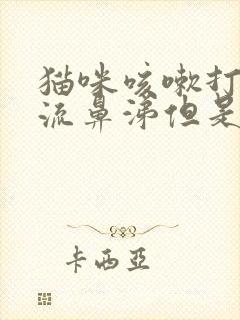 猫咪咳嗽打
流鼻涕但是
卡西亞